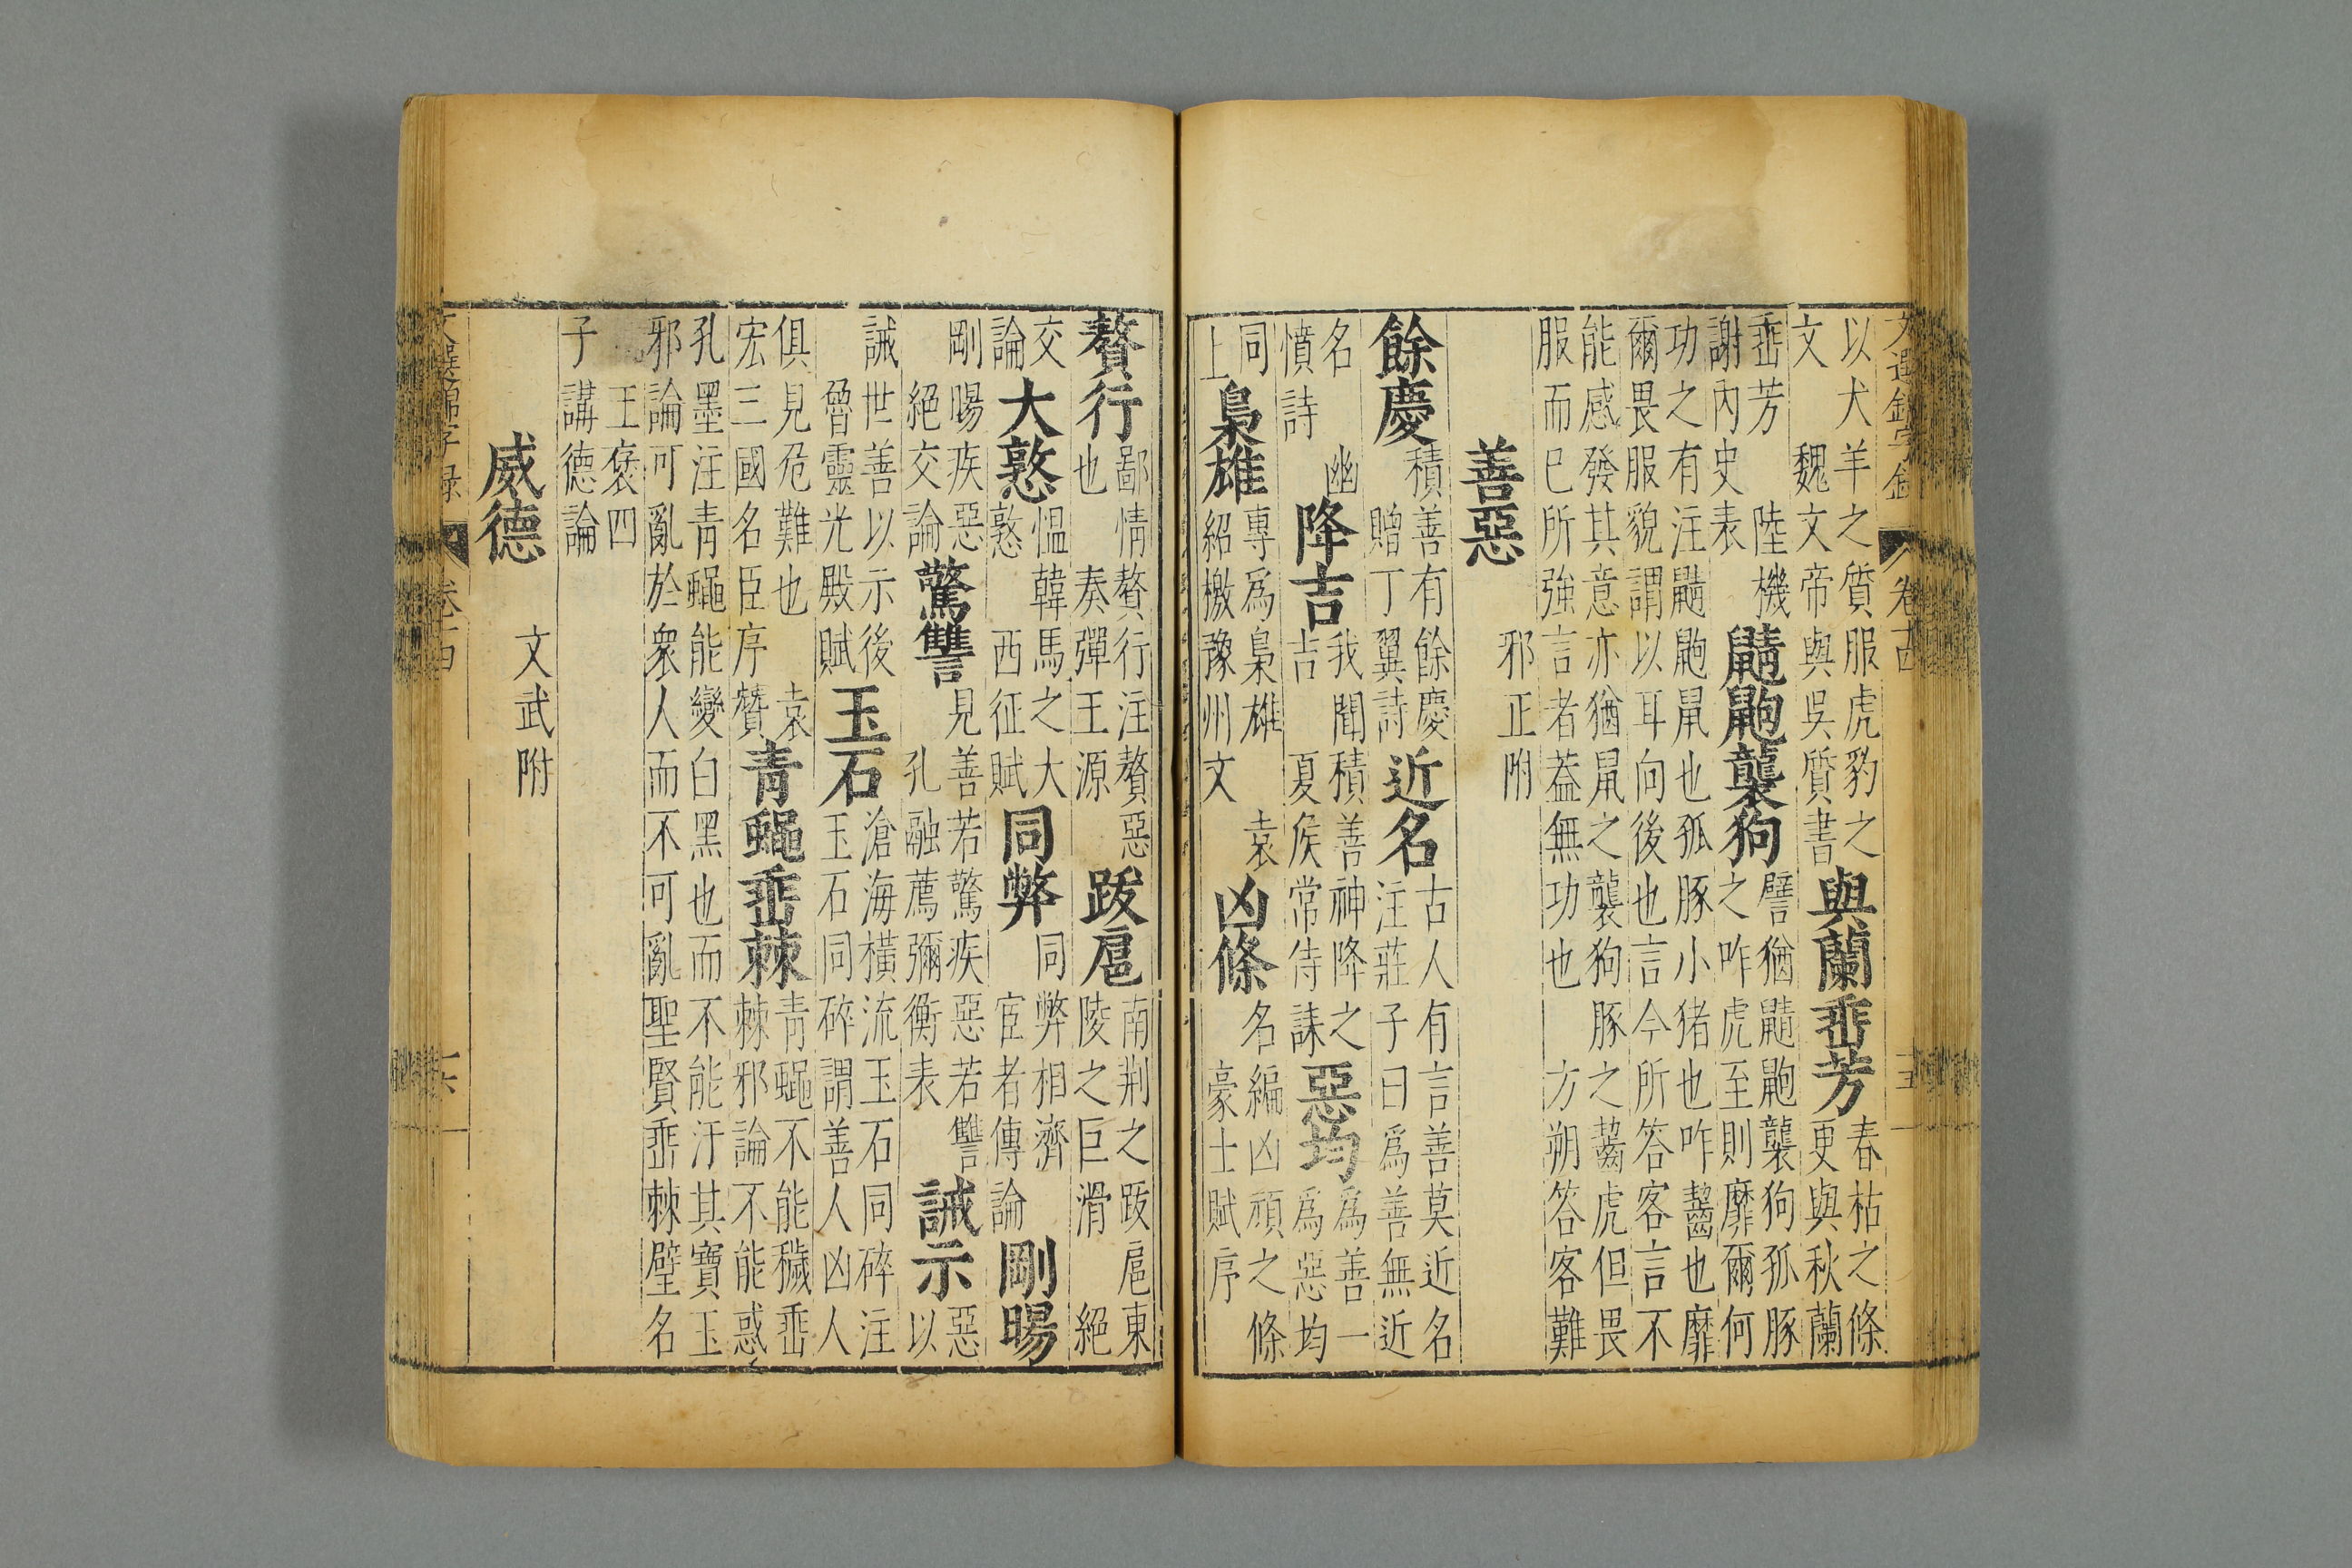 以犬羊之質服虎豹之文 魏文帝與吳質書 與蘭垂芳 春枯之條更與秋蘭
垂芳 陸機謝內史表 鼱鼩襲狗 譬猶鼱鼩襲狗孤豚之咋虎至則靡爾何
功之有注鼱鼩鼠也狐豚小猪也咋齧也靡爾畏服貌謂以耳向後也言今所答客言不
能感發其意亦猶鼠之襲狗豚之齧虎但畏服而已所強言者葢無功也 方朔答客難
善惡 邪正附
餘慶 積善有餘慶贈丁翼詩 近名 古人有言善莫近名注莊子曰爲善無近
名 幽憤詩 降吉 我聞積善神降之吉 夏侯常侍誄 惡均 爲善一爲惡均
同上 梟雄 專爲梟雄 袁紹檄豫州文 凶條 名編凶頑之條豪士賦序
贅行 鄙情贅行注贅惡也 奏彈王源 跋扈 南荆之跋扈東陵之巨滑 絕
交論 大憝 愠韓馬之大憝 西征賦 同弊 同弊相濟宦者傳論 剛暘
剛暘疾惡絕交論 驚讐 見善若驚疾惡若讐 孔融薦彌衡表 誡示 惡以
誡世善以示後魯靈光殿賦 玉石 滄海橫流玉石同碎注玉石同碎謂善人凶人
俱見危難也 袁宏三國名臣序贊 青蝿垂棘 青蝿不能穢垂棘邪論不能惑
孔墨注青蝿能變白黑也而不能汙其寶玉邪論可亂於衆人而不可亂聖賢垂棘璧名
王褒四子講德論
威德 文武附